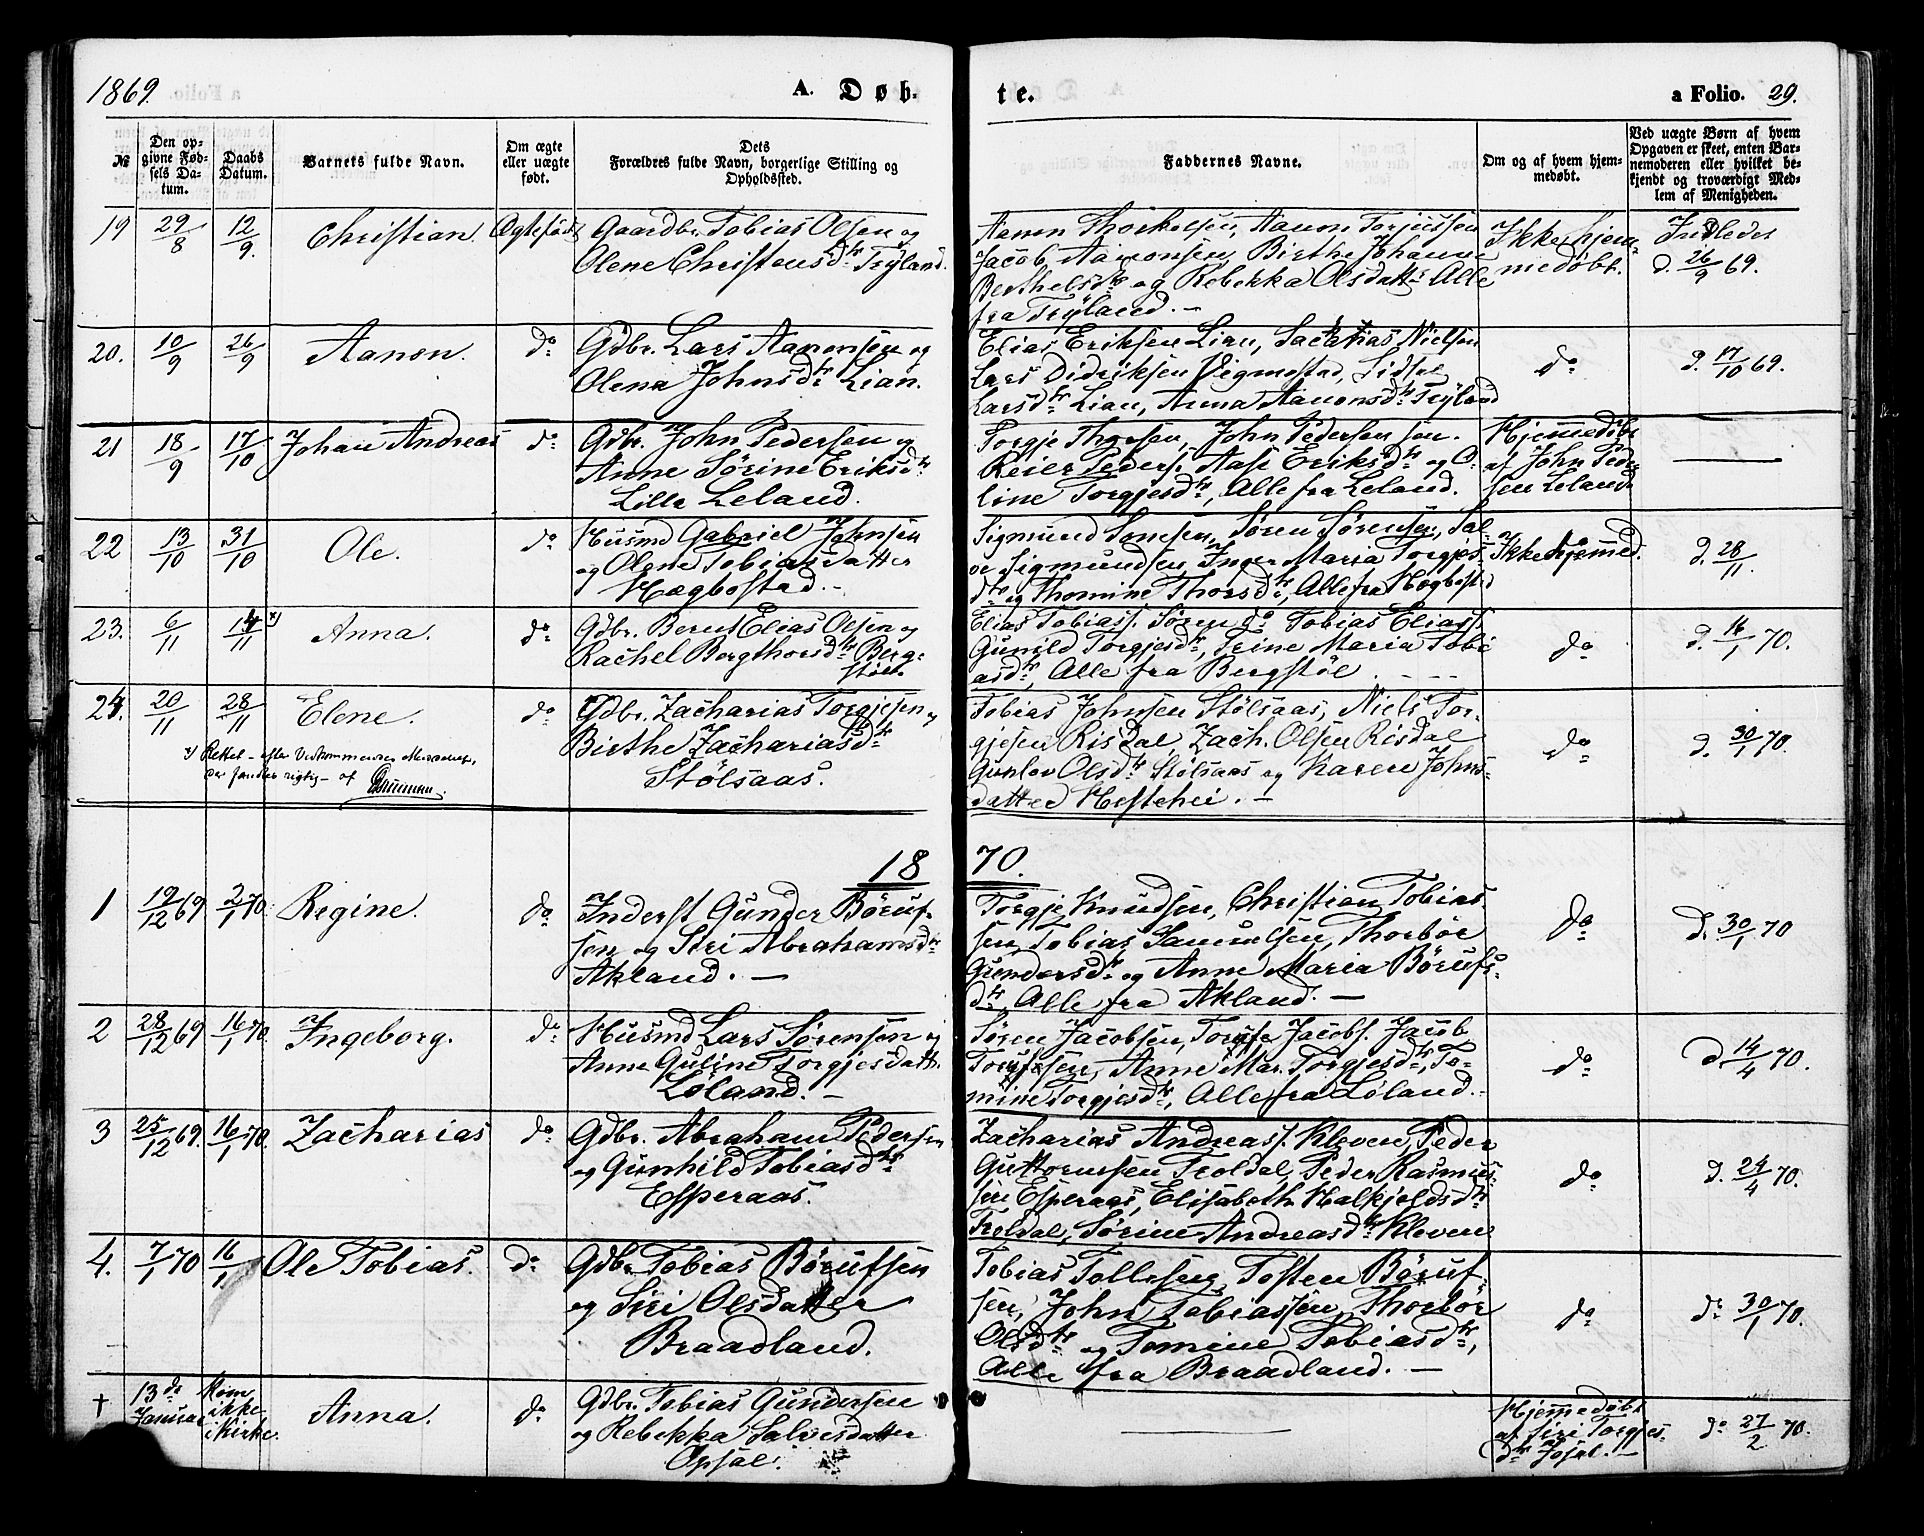 1869.
A. Døb-
te.
a Folio. 29.
№
Den op-
givne Fød-
sels Da-
tum.
Daabs
Datum.
Barnets fulde Navn.
Om ægte
eller uægte
født.
Dets
Forældres fulde Navn, borgerlige Stilling og
Opholdssted.
Faddernes Navne.
Om og af hvem hjem-
medøbt.
Ved uægte Børn af hvem
Opgaven er skeet, enten Bar-
nemoderen eller hvilket be-
kjendt og troværdigt Med-
lem af Menigheden.
19
29/8
12/9.
Christian.
Ægtefødt
Gaardbr. Tobias Olsen og
Olene Christensdtr Tryland.
Aanon Thorkelsen, Aanon Torjussen
Jacob Aanonsen, Birthe Johanne
Berthelsdtr og Rebekka Olsdatter Alle
fra Tryland. -
Ikke hjem-
medøbt.
Indledet
d. 26/9 69.
20.
10/9
26/9
Aanon.
do
Gdbr. Lars Aanonsen og
Olena Johnsdtr Lian.
Elias Eriksen Lian, Sacharias Nielsen
Lars Didriksen Vigmostad, Sidsel
Larsdtr Lian, Anna Aanonsdtr Tryland
do
d. 17/10 69.
21
18/9
17/10
Johan Andreas
do
Gdbr. John Pedersen og
Anne Sørine Eriksdtr
Lille Leland.
Torgje Thorsen, John Pedersen sen.
Reier Peders. Aase Eriksdtr og O-
line Torgjesdtr, Alle fra Leland.
Hjemmedøbt
af John Peder-
sen Leland
22
13/10
31/10
Ole.
do
Husmd Gabriel Johnsen
og Olene Tobiasdatter
Hægbostad. -
Sigmund Tomesen, Søren Sørensen, Sal-
ve Sigmundsen, Inger Maria Torgjes-
dtr og Thomine Thorsdtr, Alle fra Hægbostad
Ikke hjemmed.
d. 28/11.
23.
6/11
14/11 *)
Anna.
do
Gdbr. Berent Elias Olsen og
Rachel Bergthorsdtr Berg-
støl.
Elias Tobiass. Søren do Tobias Eliass.
Gunild Torgjesdtr, Trine Maria Tobi-
asdtr, Alle fra Bergstøl
do
d. 16/1 70.
24.
20/11
28/11
Elene.
do
Gdbr. Zacharias Torgjesen og
Birthe Zachariasdtr
Stølsaas.
Tobias Johnsen Stølsaas, Niels Tor-
gjesen Risdal, Zach. Olsen Risdal
Gunlov Olsdtr Stølsaas og Karen Johns-
datter Hestehei. -
do
d. 30/1 70.
*) Rettet - efter Vedkommendes
rigtig - af
18
70.
1
19/12 69
2/1 70.
Regine.
do
Inderst Gunder Børuf-
sen og Siri Abrahamsdtr
Akland. -
Torgje Knudsen, Christian Tobias-
sen, Tobias Samuelsen, Thorbør
Gundersdtr og Anne Maria Børufs-
dtr, Alle fra Akland. -
do
d. 30/1 70
2
28/12 69
16/1 70.
Ingeborg.
do
Husmd Lars Sørensen og
Anne Guline Torgjesdatter
Løland. -
Søren Jacobsen, Toruf Jacobs. Jacob
Torufsen, Anne Mar. Torgjesdtr, To-
mine Torgjesdtr, Alle fra Løland.
do
d. 14/4 70.
3
25/12 69.
16/1 70.
Zacharias
do
Gdbr. Abraham Pedersen
og Gunhild Tobiasdtr
Esperaas.
Zacharias Andreass. Kleven, Peder
Guttormsen Troldal, Peder Rasmus-
sen Esperaas, Elisabeth Halkjeldsdtr
Troldal, Sørine Andreasdtr Kleven
do
d. 24/4 70.
4.
7/1 70
16/1
Ole Tobias.
do
Gdbr. Tobias Børufsen
og Siri Olsdatter
Braadland.
Tobias Tollefsen, Tosten Børuf-
sen, John Tobiassen, Thorbør
Olsdtr og Tomine Tobiasdtr,
Alle fra Braadland. -
do
do 30/1 70.
†
13de
Januar
Kom
ikke
i Kirke.
Anna.
do
Gdbr. Tobias Gundersen
og Rebekka Salvesdatter
Opsal.
Hjemmedøbt
af Siri Torgjes-
dtr Josal. -
do 27/2 70.